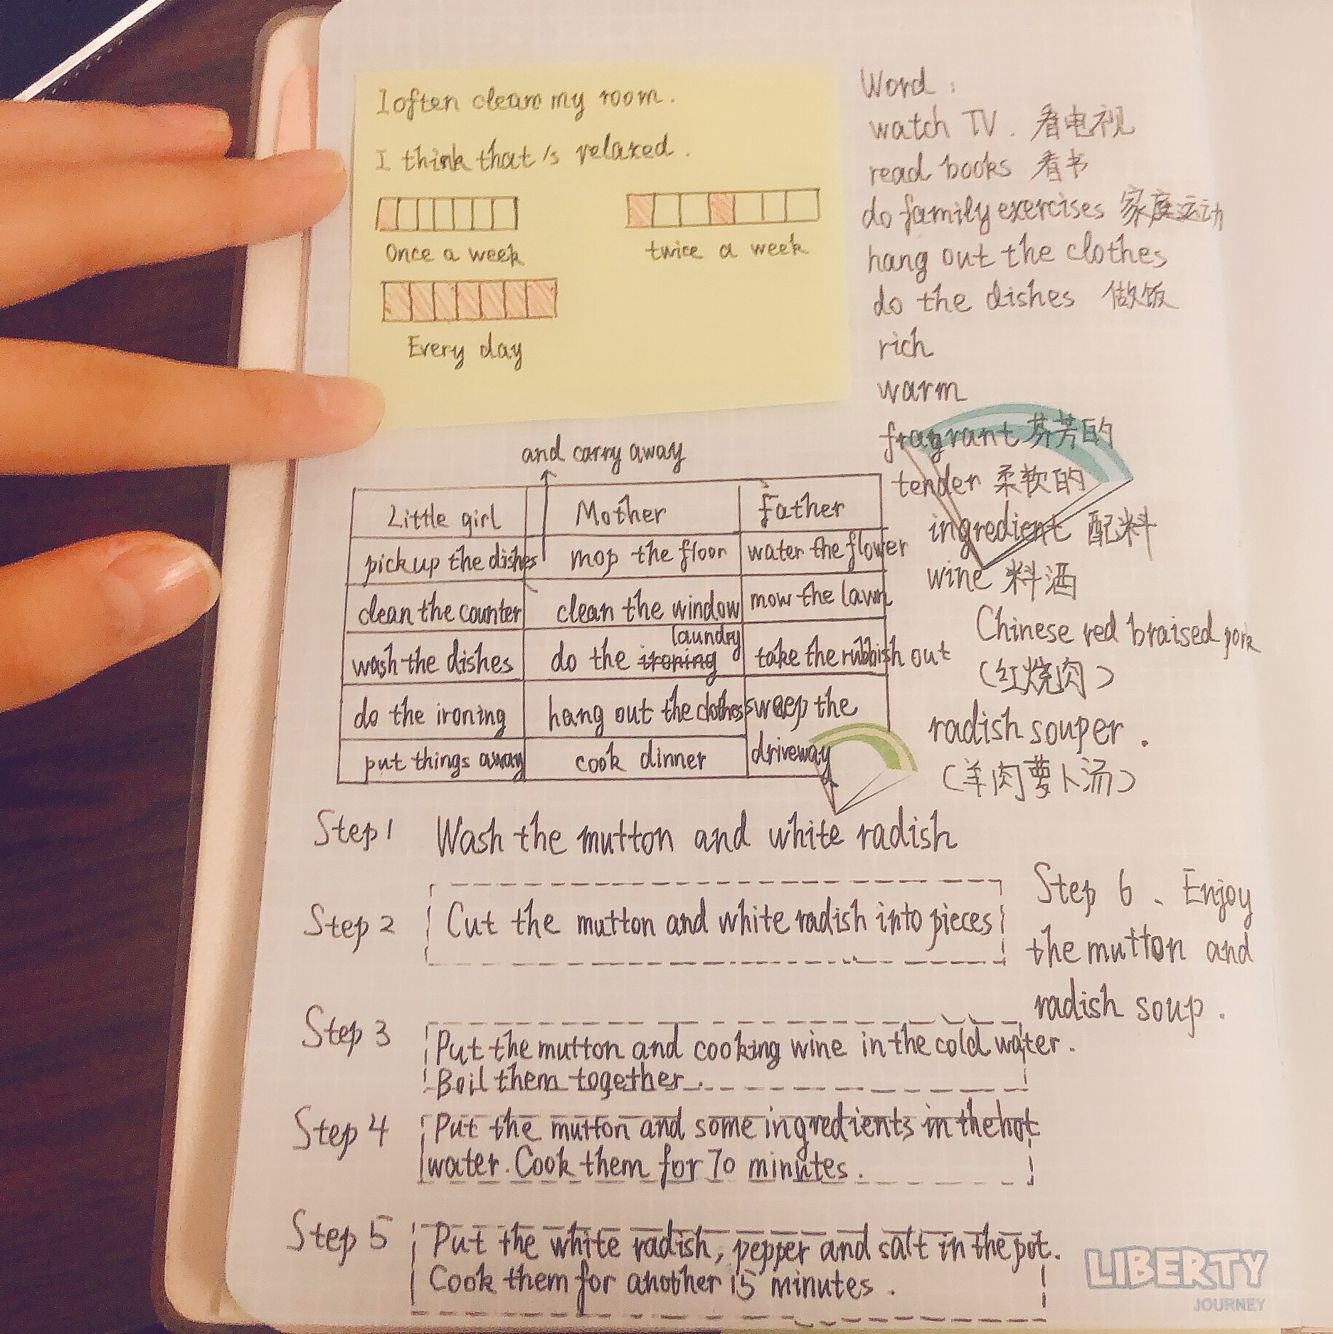 I often clean my room.
I think that's relaxed.
Once a week
twice a week
Every day
Word:
watch TV. 看电视
read books 看书
do family exercises 家庭运动
hang out the clothes
do the dishes 做饭
rich
warm
fragrant 芬芳的
tender 柔软的
ingredient 配料
wine 料酒
Chinese red braised pork
(红烧肉)
radish souper.
(羊肉萝卜汤)
and carry away
Little girl Mother Father
pick up the dishes mop the floor water the flower
clean the counter clean the window mow the lawn
laundry
wash the dishes do the ironing take the rubbish out
do the ironing hang out the clothes sweep the
put things away cook dinner driveway
Step 1 Wash the mutton and white radish
Step 2 Cut the mutton and white radish into pieces
Step 3 Put the mutton and cooking wine in the cold water.
Boil them together.
Step 4 Put the mutton and some ingredients in the hot
water. Cook them for 70 minutes.
Step 5 Put the white radish, pepper and salt in the pot.
Cook them for another 15 minutes.
Step 6、Enjoy
the mutton and
radish soup.
LIBERTY
JOURNEY